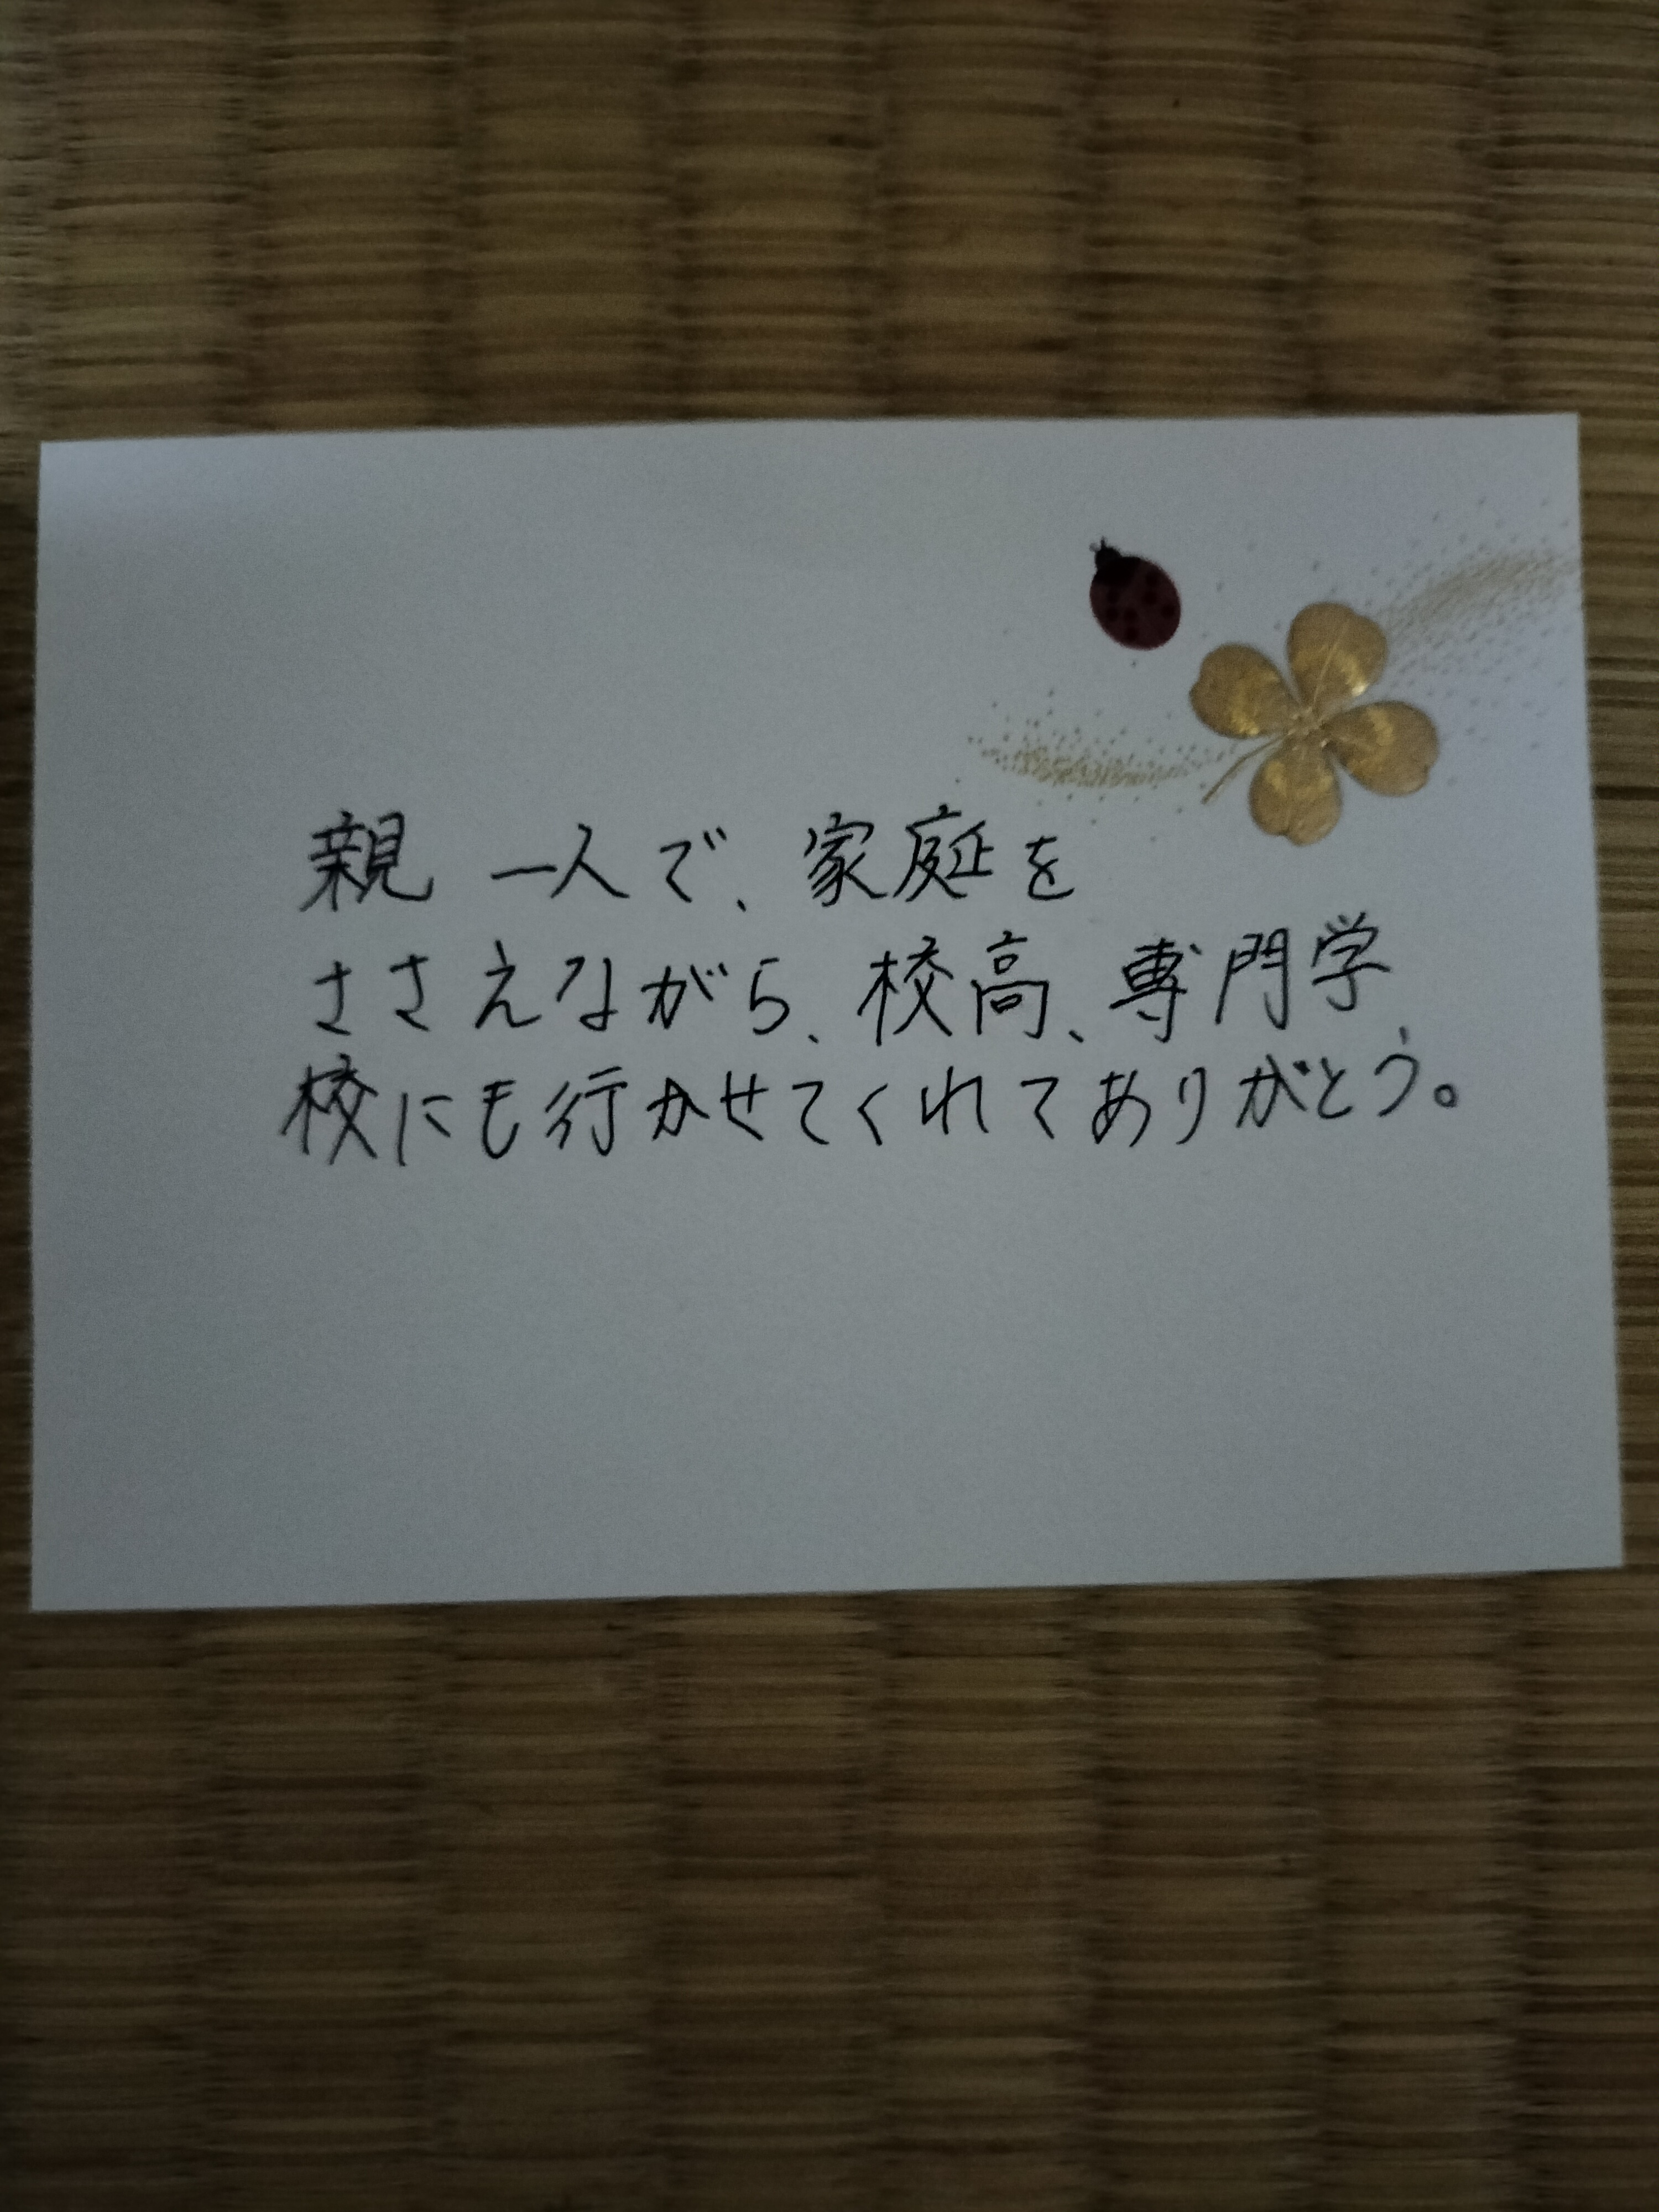 親 一人で、家庭を
ささえながら、校高、専門学
校にも行かせてくれてありがとう。